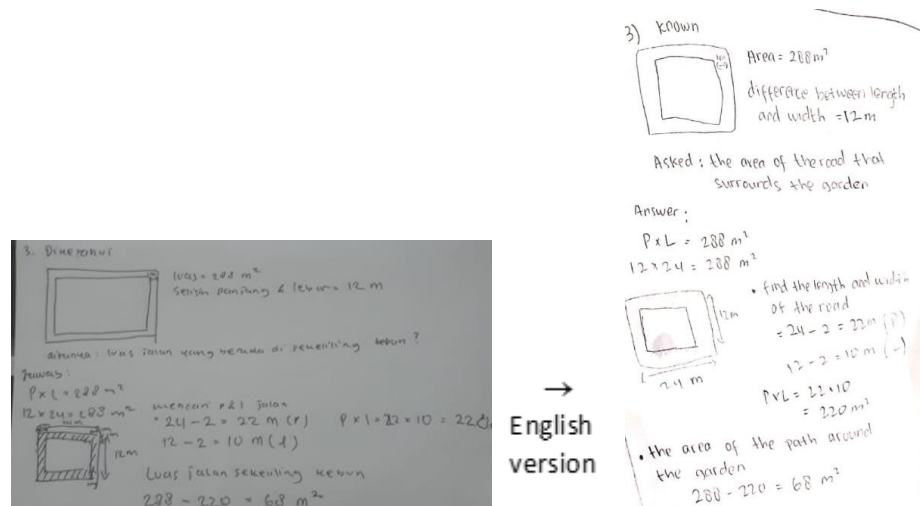 3. Diketahui
luas = 288 m²
Selisih panjang & lebar = 12 m
ditanya : luas jalan yang berada di sekeliling kebun ?
Jawab :
P x l = 288 m²
12 x 24 = 288 m²
12m
mencari p & l jalan
• 24 - 2 = 22 m (p)
12 - 2 = 10 m (l)
P x l = 22 x 10 = 220
Luas jalan sekeliling kebun
288 - 220 = 68 m²
→
English
version
3) Known
Area = 288 m²
difference between length
and width = 12 m
Asked : the area of the road that
surrounds the garden
Answer :
P x L = 288 m²
12 x 24 = 288 m²
12m
24 m
• find the length and width
of the road
= 24 - 2 = 22m (P)
12 - 2 = 10 m (L)
P x L = 22 x 10
= 220 m²
• the area of the path around
the garden
288 - 220 = 68 m²